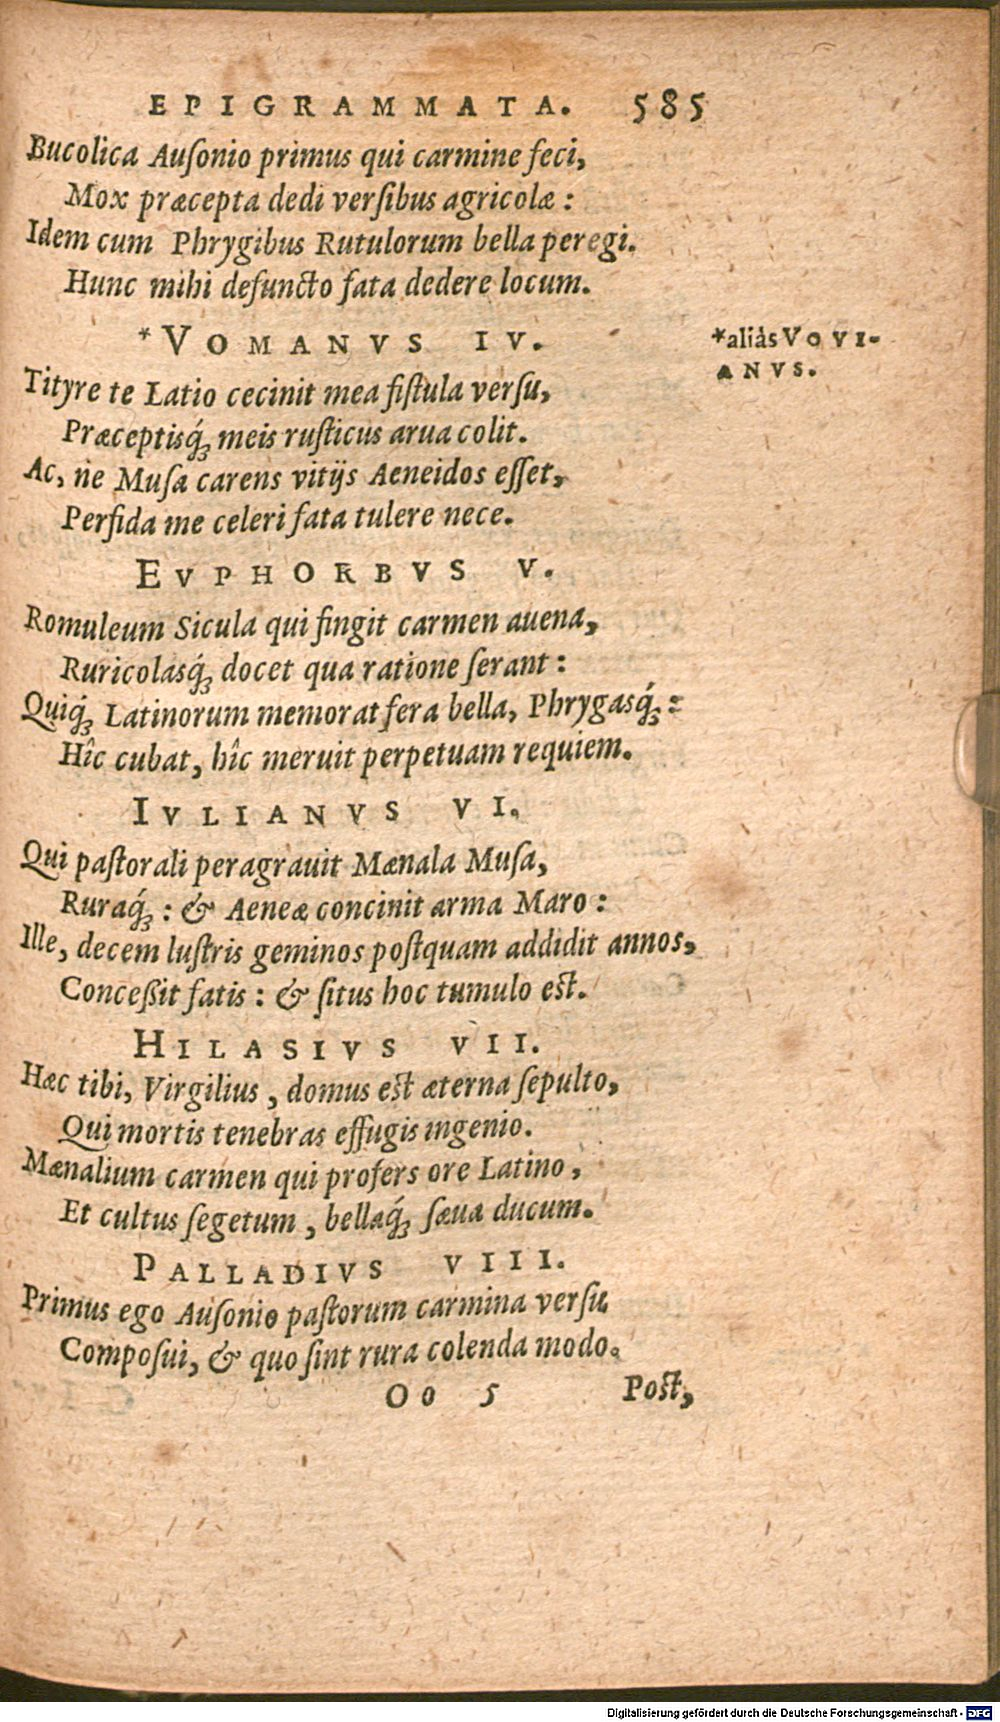 EPIGRAMMATA. 585
Bucolica Auſonio primus qui carmine feci,
Mox præcepta dedi verſibus agricolæ:
Idem cum Phrygibus Rutulorum bella peregi.
Hunc mihi defuncto fata dedere locum.
*VOMANVS IV.
*aliàs VOVI-
ANVS.
Tityre te Latio cecinit mea fiſtula verſu,
Præceptisq́ꝫ meis ruſticus arua colit.
Ac, ne Muſa carens vitijs Aeneidos eſſet,
Perfida me celeri fata tulere nece.
EVPHORBVS V.
Romuleum Sicula qui fingit carmen auena,
Ruricolasq́ꝫ docet qua ratione ſerant:
Quiq́ꝫ Latinorum memorat fera bella, Phrygasq́ꝫ:
Hîc cubat, hîc meruit perpetuam requiem.
IVLIANVS VI.
Qui paſtorali peragrauit Mænala Muſa,
Ruraq́ꝫ: & Aeneæ concinit arma Maro:
Ille, decem luſtris geminos poſtquam addidit annos,
Conceßit fatis: & ſitus hoc tumulo eſt.
HILASIVS VII.
Hæc tibi, Virgilius, domus eſt æterna ſepulto,
Qui mortis tenebras effugis ingenio.
Mænalium carmen qui profers ore Latino,
Et cultus ſegetum, bellaq́ꝫ ſæua ducum.
PALLADIVS VIII.
Primus ego Auſonio paſtorum carmina verſu
Compoſui, & quo ſint rura colenda modo.
Oo 5 Poſt,
Digitalisierung gefördert durch die Deutsche Forschungsgemeinschaft - DFG